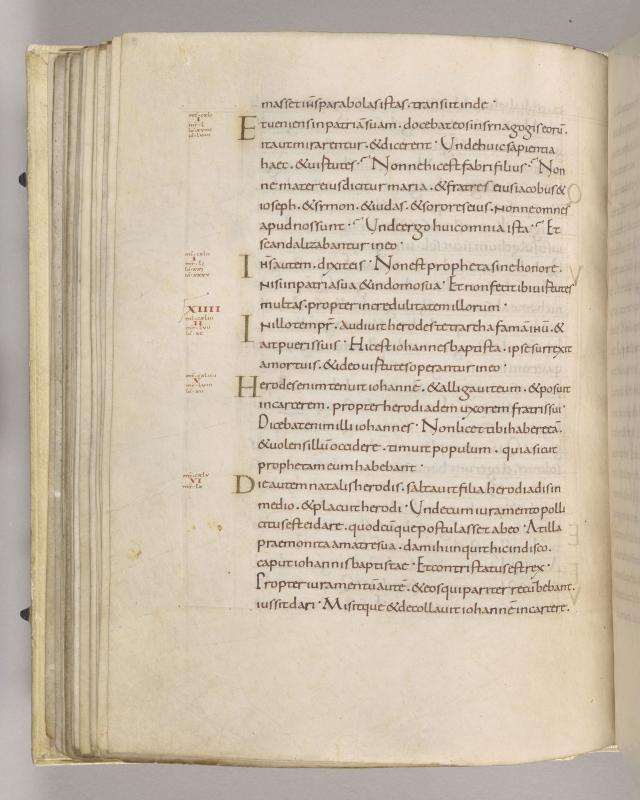 masset ih̅s parabolas istas · transiit inde ·
Et veniens in patriā suam · docebat eos in synagogis eorū ·
ita ut mirarentur · & dicerent · Unde huic sapientia
haec · & virtutes · Nonne hic est fabri filius · Non
ne mater eius dicitur maria · & fratres eius iacobus &
ioseph · & symon · & iudas · & sorores eius · nonne omnes
apud nos sunt · Unde ergo huic omnia ista · Et
scandalizabantur in eo ·
Ih̅s autem · dixit eis · Non est propheta sine honore ·
nisi in patria sua & in domo sua · Et non fecit ibi virtutes
multas · propter incredulitatem illorum ·
XIIII
In illo tempr̅ · audivit herodes tetrarcha famā ih̅u · &
ait pueris suis · Hic est iohannes baptista · ipse surrexit
a mortuis · & ideo virtutes operantur in eo ·
V
Herodes enim tenuit iohannē · & alligavit eum · & posuit
in carcerem · propter herodiadem uxorem fratris sui ·
Dicebat enim illi iohannes · Non licet tibi habere eā ·
& volens illū occidere · timuit populum · quia sicut
prophetam eum habebant ·
VI
Die autem natalis herodis · saltavit filia herodiadis in
medio · & placuit herodi · Unde cum iuramento polli
citus est ei dare · quodcūque postulasset ab eo · At illa
praemonita a matre sua · da mihi inquit hic in disco ·
caput iohannis baptistae · Et contristatus est rex ·
Propter iuramentū autē · & eos qui pariter recūbebant ·
iussit dari · Misitque & decollavit iohannē in carcere ·